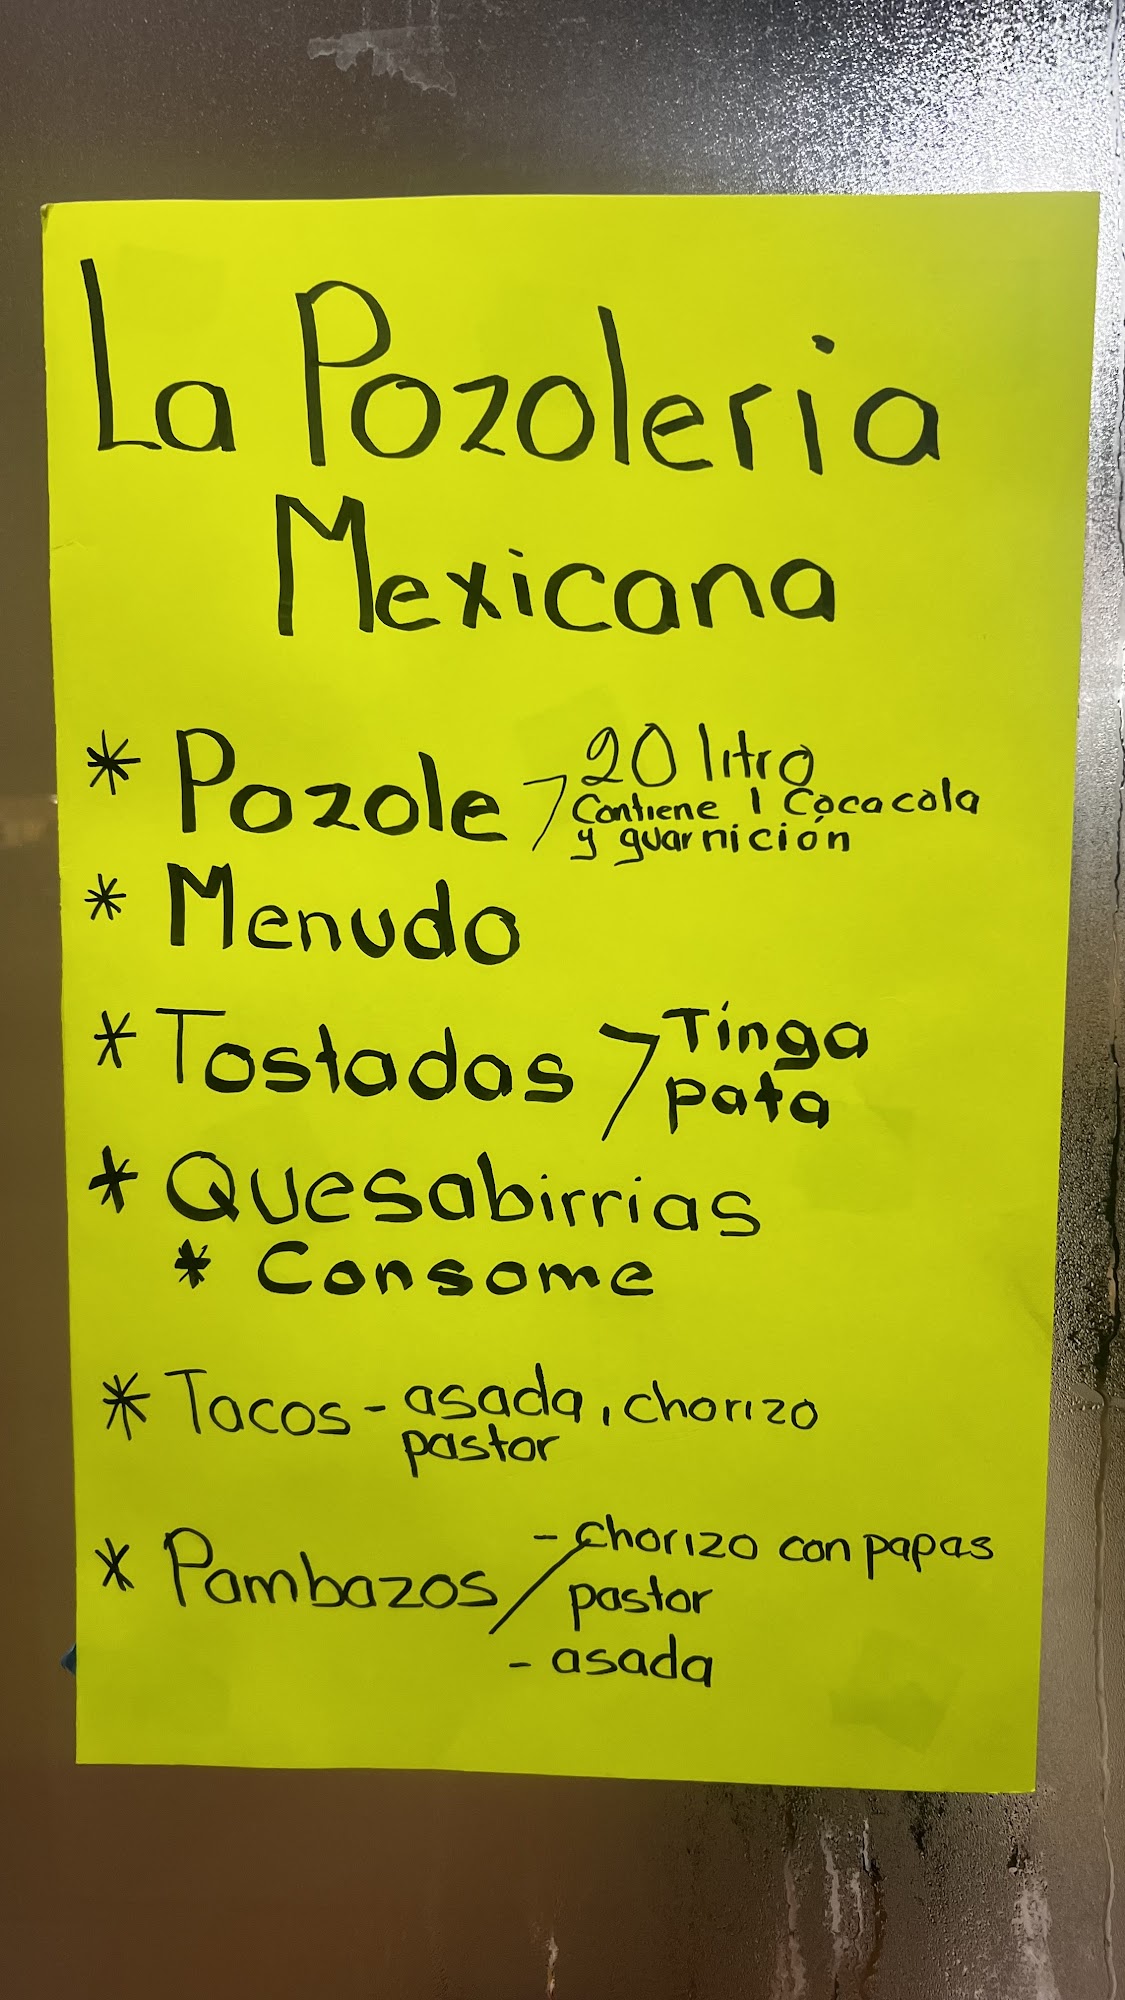 La Pozoleria
Mexicana
* Pozole 20 litro
Contiene 1 Coca cola
y guarnición
* Menudo
* Tostadas Tinga
pata
* Quesabirrias
* Consome
* Tacos - asada, chorizo
pastor
* Pambazos - chorizo con papas
pastor
- asada